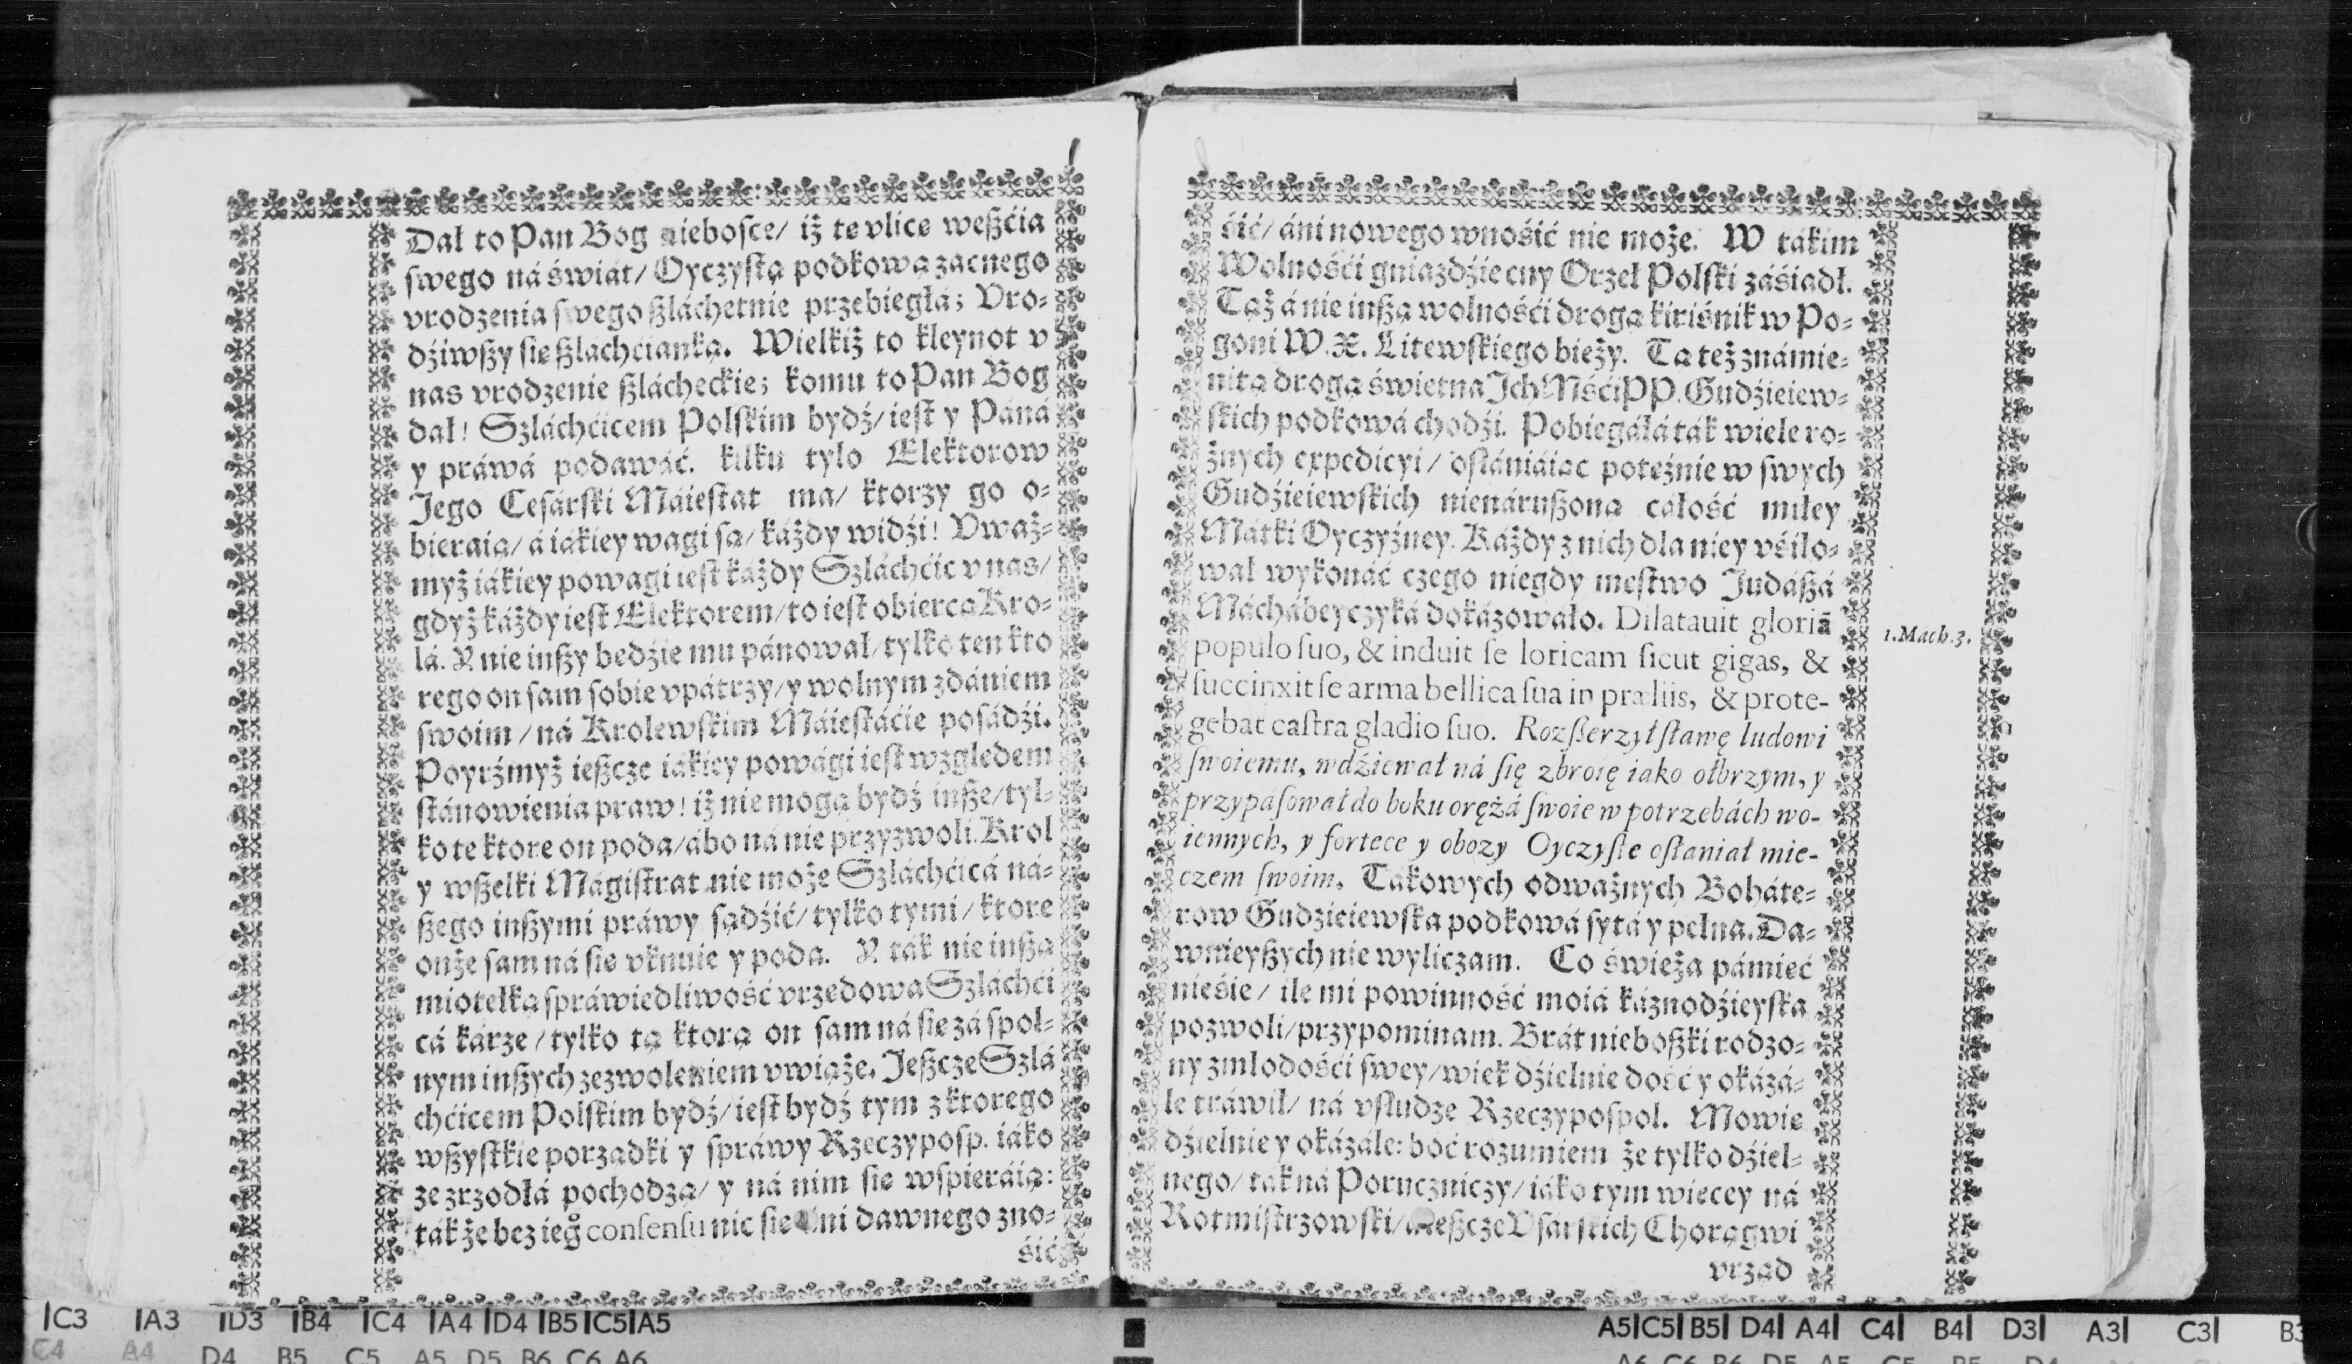 Dał to Pan Bog nieboſce/ iż te vlice weßćia
ſwego ná świát/ Oyczyſtą podkową zacnego
vrodzenia ſwego ßláchetnie przebiegłá; Vro-
dźiwßy ſie ßlachcianką. Wielkiż to kleynot v
nas vrodzenie ßlácheckie; komu to Pan Bog
dał! Szláchćicem Polſkim bydź/ ieſt y Páná
y práwá podawáć. kilku tylo Elektorow
Jego Ceſárſki Máieſtat ma/ ktorzy go o-
bieraią/ á iákiey wagi ſą/ káżdy widźi! Vważ-
myż iákiey powagi ieſt każdy Szláchćic v nas/
gdyż káżdy ieſt Elektorem/ to ieſt obiercą Kro-
lá. Y nie inßy bedźie mu pánował/ tylko ten kto
rego on ſam ſobie vpátrzy/ y wolnym zdániem
ſwoim/ ná Krolewſkim Máieſtáćie poſádźi.
Poyrźmyż ießcze iákiey powági ieſt wzgledem
ſtánowienia praw! iż nie mogą bydź inße/ tyl-
ko te ktore on poda/ ábo ná nie przyzwoli. Krol
y wßelki Mágiſtrat nie może Szláchćicá ná-
ßego inßymi práwy ſądźić/ tylko tymi/ ktore
onże ſam ná ſie vknuie y poda. Y ták nie inßą
miotełką ſpráwiedliwość vrzedowa Szláchći
cá kárze/ tylko tą ktorą on ſam ná ſie zá ſpol-
nym inßych zezwoleniem vwiąże. Jeßcze Szlá
chćicem Polſkim bydź/ ieſt bydź tym z ktorego
wßyſtkie porządki y ſpráwy Rzeczypoſp. iáko
ze zrzodłá pochodzą/ y ná nim ſie wſpieráią:
tákże bez ieg° conſenſu nic ſie áni dawnego zno-
śić
śić/ áni nowego wnośić nie może. W tákim
Wolnośći gniazdźie cny Orzeł Polſki záśiadł.
Tąż á nie inßą wolnośći drogą kiriśnik w Po-
goni W. X. Litewſkiego bieży. Tą też známie-
nitą drogą świetna Jch Mśći PP. Gudźieiew-
ſkich podkowá chodźi. Pobiegáłá ták wiele ro-
żnych expedicyi/ oſłániáiąc poteżnie w ſwych
Gudźieiewſkich nienárußoną całość miłey
Mátki Oyczyźney. Káżdy z nich dla niey vśiło-
wał wykonáć czego niegdy meſtwo Judáßá
Máchábeyczyká dokázowáło. Dilatauit gloriã
populo ſuo, & induit ſe loricam ſicut gigas, &
ſuccinxit ſe arma bellica ſua in præliis, & prote-
gebat caſtra gladio ſuo. Rozßerzył ſławę ludowi
ſwoiemu, wdźiewał ná ſię zbroię iako ołbrzym, y
przypáſował do boku orężá ſwoie w potrzebách wo-
iennych, y fortece y obozy Oyczyſte oſłaniał mie-
czem ſwoim, Takowych odważnych Boháte-
row Gudzieiewſka podkowá ſytá y pełna. Da-
wnieyßych nie wyliczam. Co świeża pámieć
nieśie/ ile mi powinność moiá káznodźieyſka
pozwoli/ przypominam. Brát nieboßki rodzo-
ny z młodośći ſwey/ wiek dźielnie dość y okázá-
le tráwił/ ná vſłudze Rzeczypoſpol. Mowie
dźielnie y okázále: boć rozumiem że tylko dźiel-
nego/ ták ná Poruczniczy/ iáko tym wiecey ná
Rotmiſtrzowſki/ ießcze Vſárſkich Chorągwi
vrząd
1.Mach.3.
C3 A3 D3 B4 C4 A4 D4 B5 C5 A5
A5 C5 B5 D4 A4 C4 B4 D3 A3 C3 B3
C4 A4 D4 B5 C5 A5 D5 B6 C6 A6